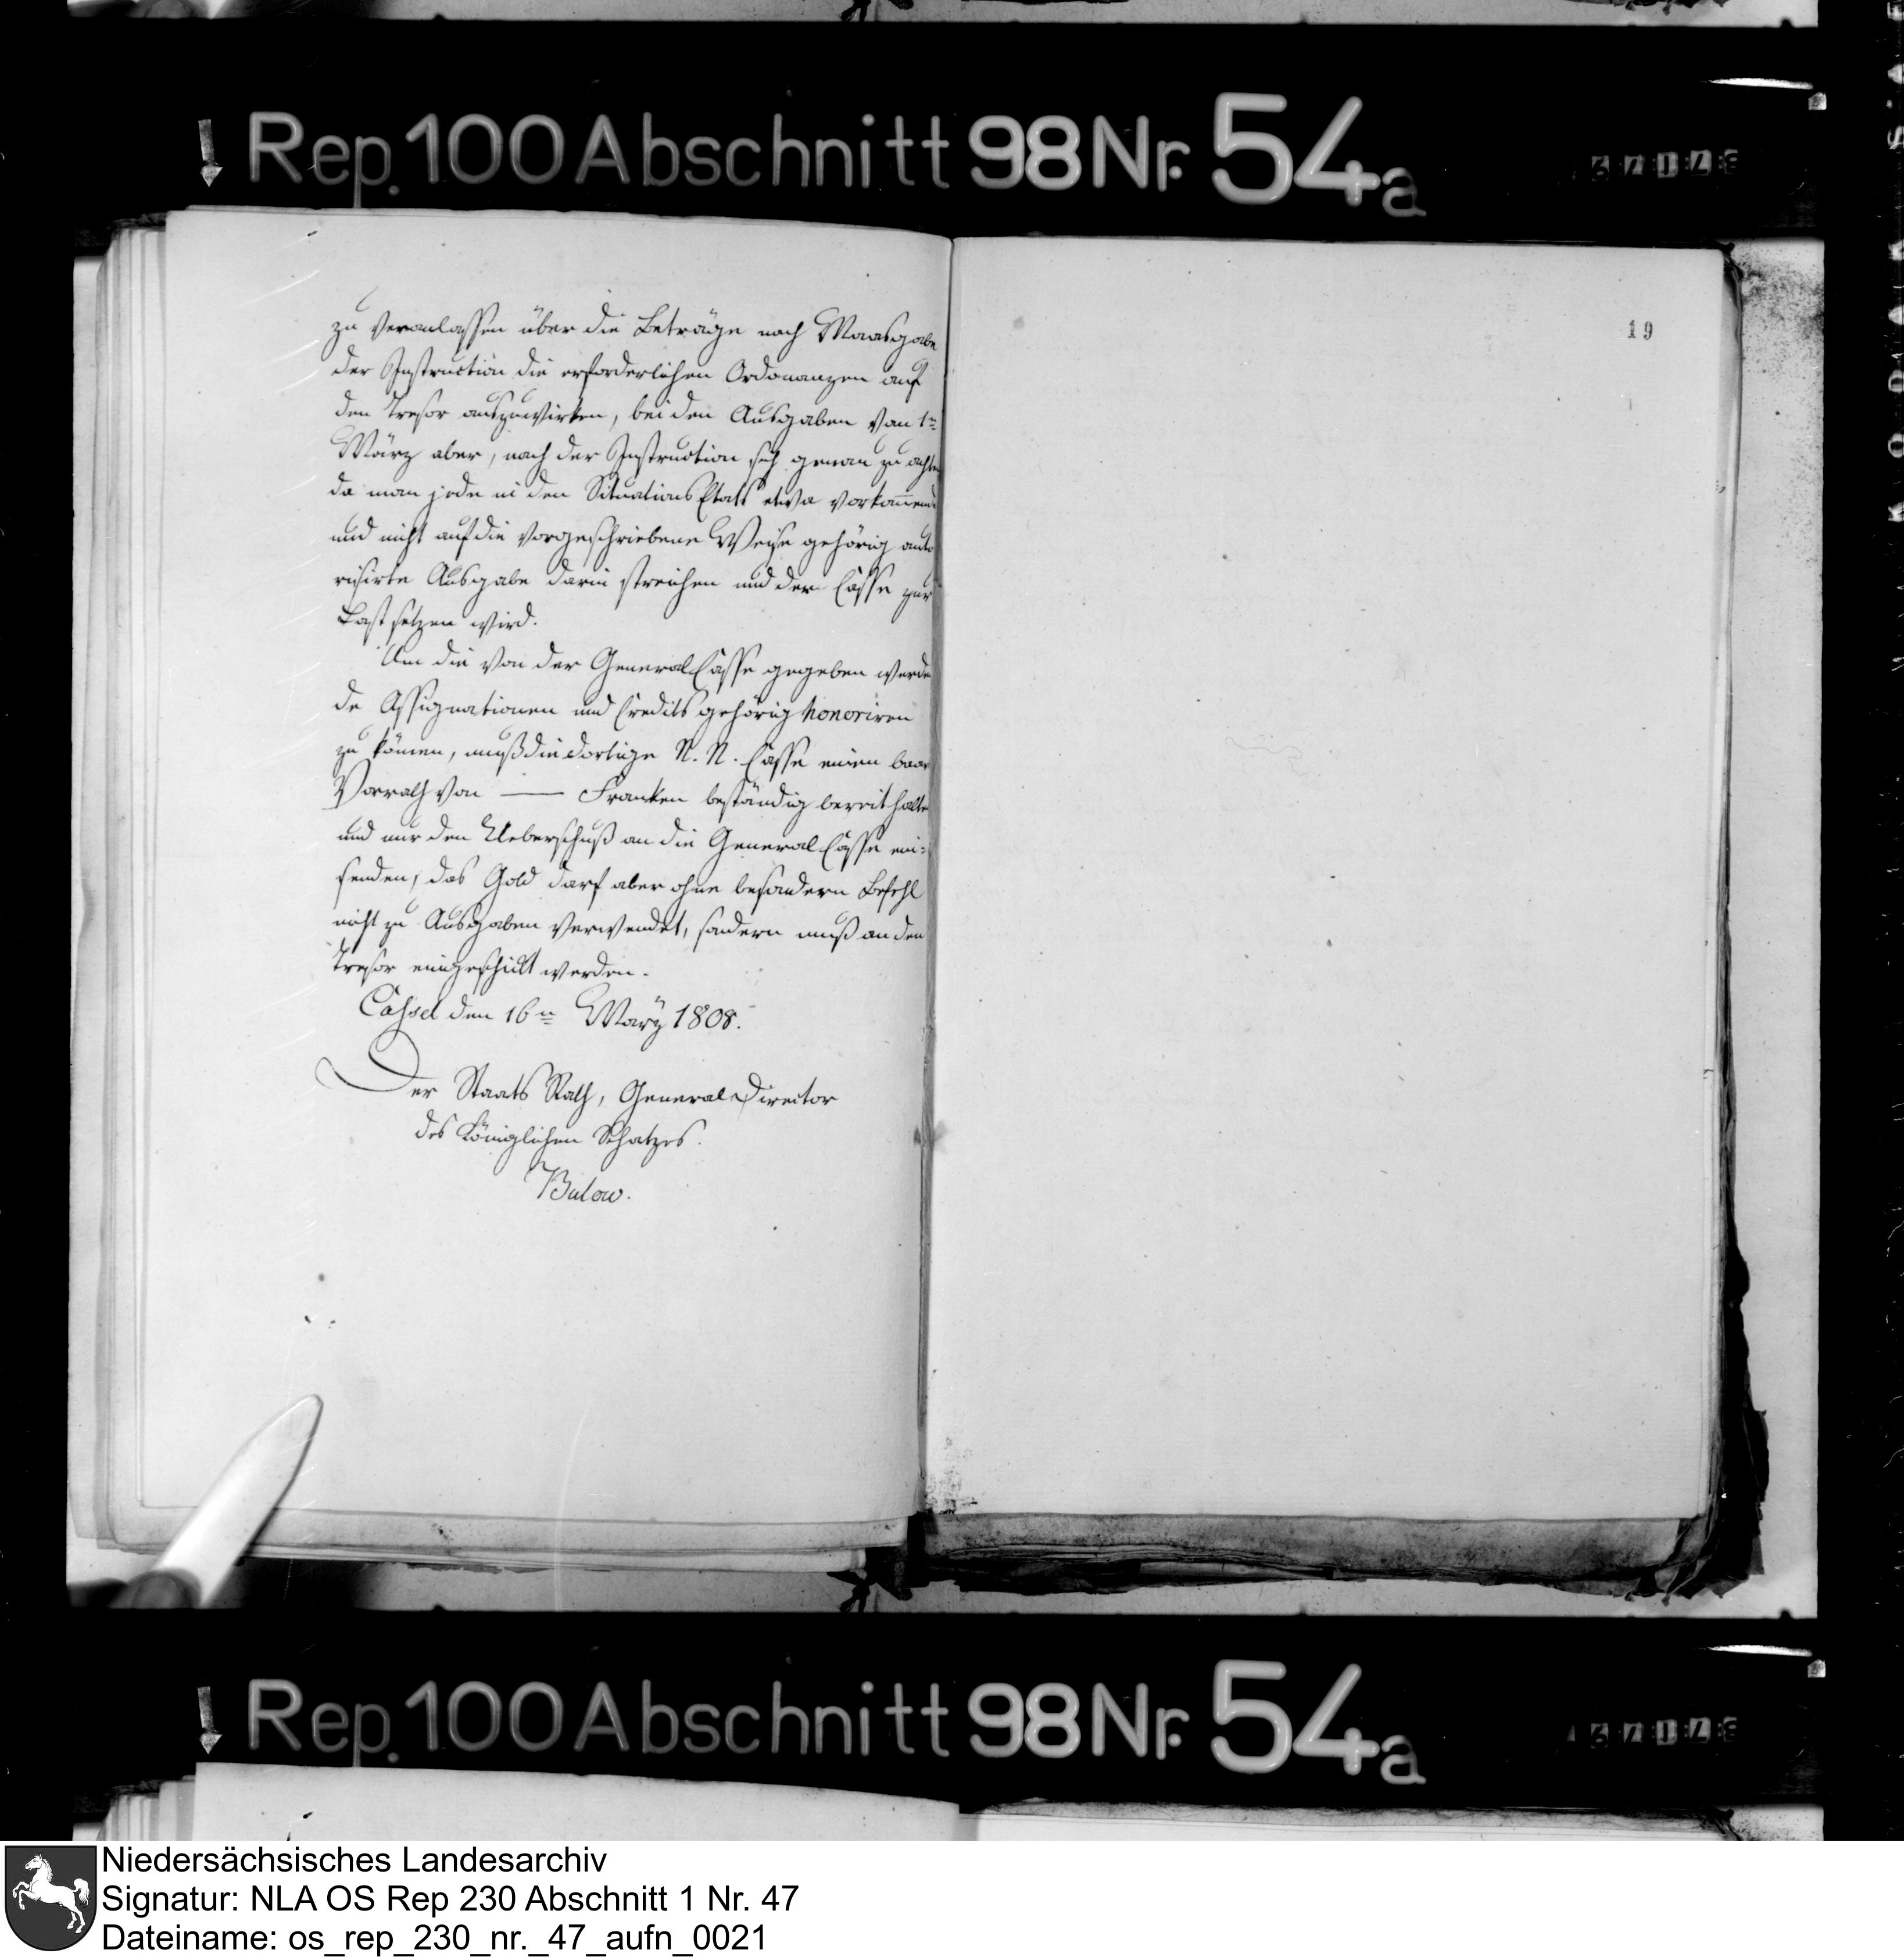 Rep. 100 Abschnitt 98 Nr. 54a
zu veranlassen über die Beträge nach Maasgabe
der Instruction die erforderlichen Ordonanzen auf
den Tresor auszuwirken, bei den Ausgaben vom 1n
März aber, nach der Instruction sich genau zu achten
da man jede in den Situations Etats etwa vorkom̅ende
und nicht auf die vorgeschriebene Weise gehörig auto
risirte Ausgabe darin streichen und der Casse zur
Last setzen wird.
Um die von der General Casse gegeben werden
de Assignationen und Credits gehörig honoriren
zu kön̅en, muß die dortige N. N. Casse einen baar
Vorrath von — Franken beständig bereit halten
und nur den Ueberschuß an die General Casse ein-
senden, das Gold darf aber ohne besondern Befehl
nicht zu Ausgaben verwendet, sondern muß an den
Tresor eingeschickt werden.
Cassel den 16n März 1808.
Der Staats Rath, General Director
des Königlichen Schatzes.
Bulow.
19
Rep. 100 Abschnitt 98 Nr. 54a
Niedersächsisches Landesarchiv
Signatur: NLA OS Rep 230 Abschnitt 1 Nr. 47
Dateiname: os_rep_230_nr._47_aufn_0021